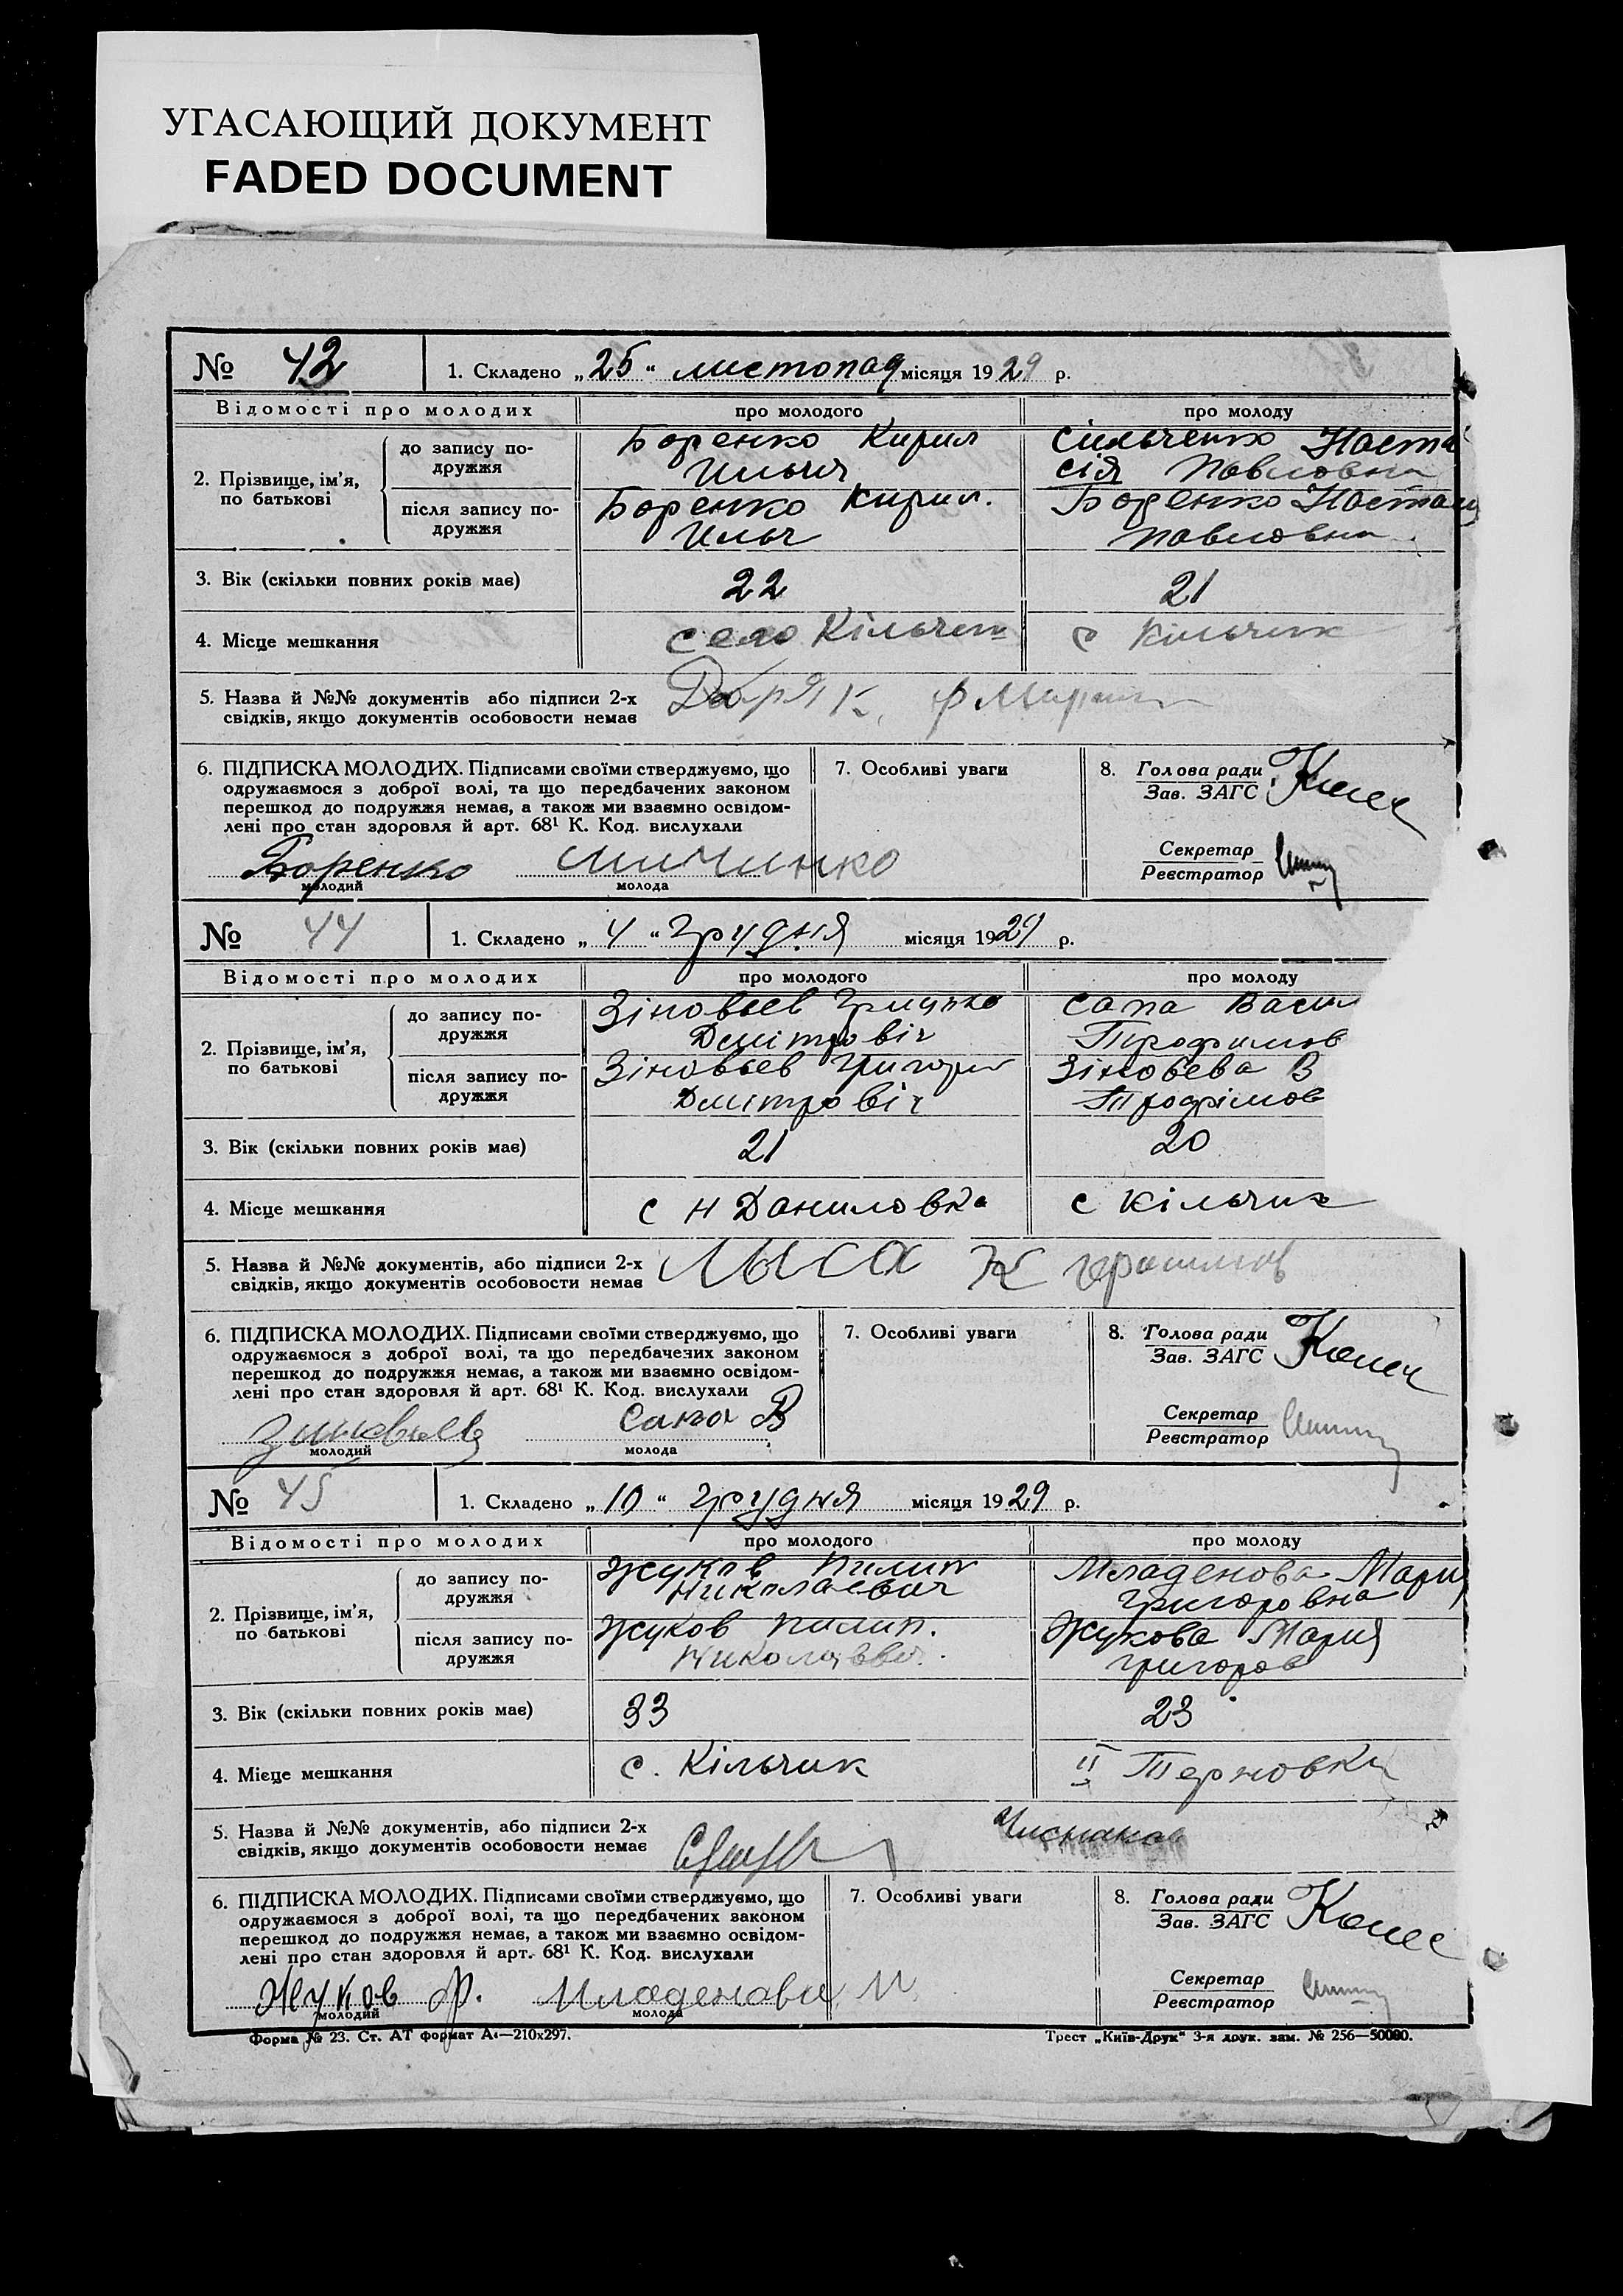 УГАСАЮЩИЙ ДОКУМЕНТ
FADED DOCUMENT
№ 43 1. Складено „25“ листопад місяця 1929 р.
Відомості про молодих про молодого про молоду
2. Прізвище, ім’я, по батькові
до запису подружжя
Боренко Кирил
Ильич
Сильченко Наста
сія Павловна
після запису по-
дружжя
Боренко Кирил.
Ильч
Боренко Настас
Павловна
3. Вік (скільки повних років має) 22 21
4. Місце мешкання село Кільчен с Кільчик
5. Назва й №№ документів або підписи 2-х
свідків, якщо документів особовости немає
6. ПІДПИСКА МОЛОДИХ. Підписами своїми стверджуємо, що
одружаємося з доброї волі, та що передбачених законом
перешкод до подружжя немає, а також ми взаємно освідом-
лені про стан здоровля й арт. 68¹ К. Код. вислухали
Боренко
молодий молода
7. Особливі уваги
8. Голова ради
Зав. ЗАГС
Секретар
Реєстратор
№ 44 1. Складено „4“ грудня місяця 1929 р.
Відомості про молодих про молодого про молоду
2. Прізвище, ім’я,
по батькові
до запису по-
дружжя
Зіновьев Грицько
Дмитровіч
Сапа Васил
Трофимов
після запису по-
дружжя
Зіновьев Григорий
Дмитровіч
Зіновьева В
Трофімов
3. Вік (скільки повних років має) 21 20
4. Місце мешкання с Н Даниловка с Кільчик
5. Назва й №№ документів, або підписи 2-х
свідків, якщо документів особовости немає
Лыса
6. ПІДПИСКА МОЛОДИХ. Підписами своїми стверджуємо, що
одружаємося з доброї волі, та що передбачених законом
перешкод до подружжя немає, а також ми взаємно освідом-
лені про стан здоровля й арт. 68¹ К. Код. вислухали
Зиновьев Сапа В
молодий молода
7. Особливі уваги
8. Голова ради
Зав. ЗАГС
Секретар
Реєстратор
№ 45 1. Складено „10“ грудня місяця 1929 р.
Відомості про молодих про молодого про молоду
2. Прізвище, ім’я,
по батькові
до запису по-
дружжя
Жуков Пилип
Николаевич
Младенова Мари
Григоровна
після запису по-
дружжя
Жуков Пилип.
Жукова Мария
Григоров
3. Вік (скільки повних років має) 33 23
4. Місце мешкання с. Кільчик II Терновка
5. Назва й №№ документів, або підписи 2-х
свідків, якщо документів особовости немає
6. ПІДПИСКА МОЛОДИХ. Підписами своїми стверджуємо, що
одружаємося з доброї волі, та що передбачених законом
перешкод до подружжя немає, а також ми взаємно освідом-
лені про стан здоровля й арт. 68¹ К. Код. вислухали
Жуков Ф. Младенова М
молодий молода
7. Особливі уваги
8. Голова ради
Зав. ЗАГС
Секретар
Реєстратор
Форма № 23. Ст. АТ формат А₄—210х297. Трест „Київ-Друк“ 3-я друк. зам. № 256—50000.